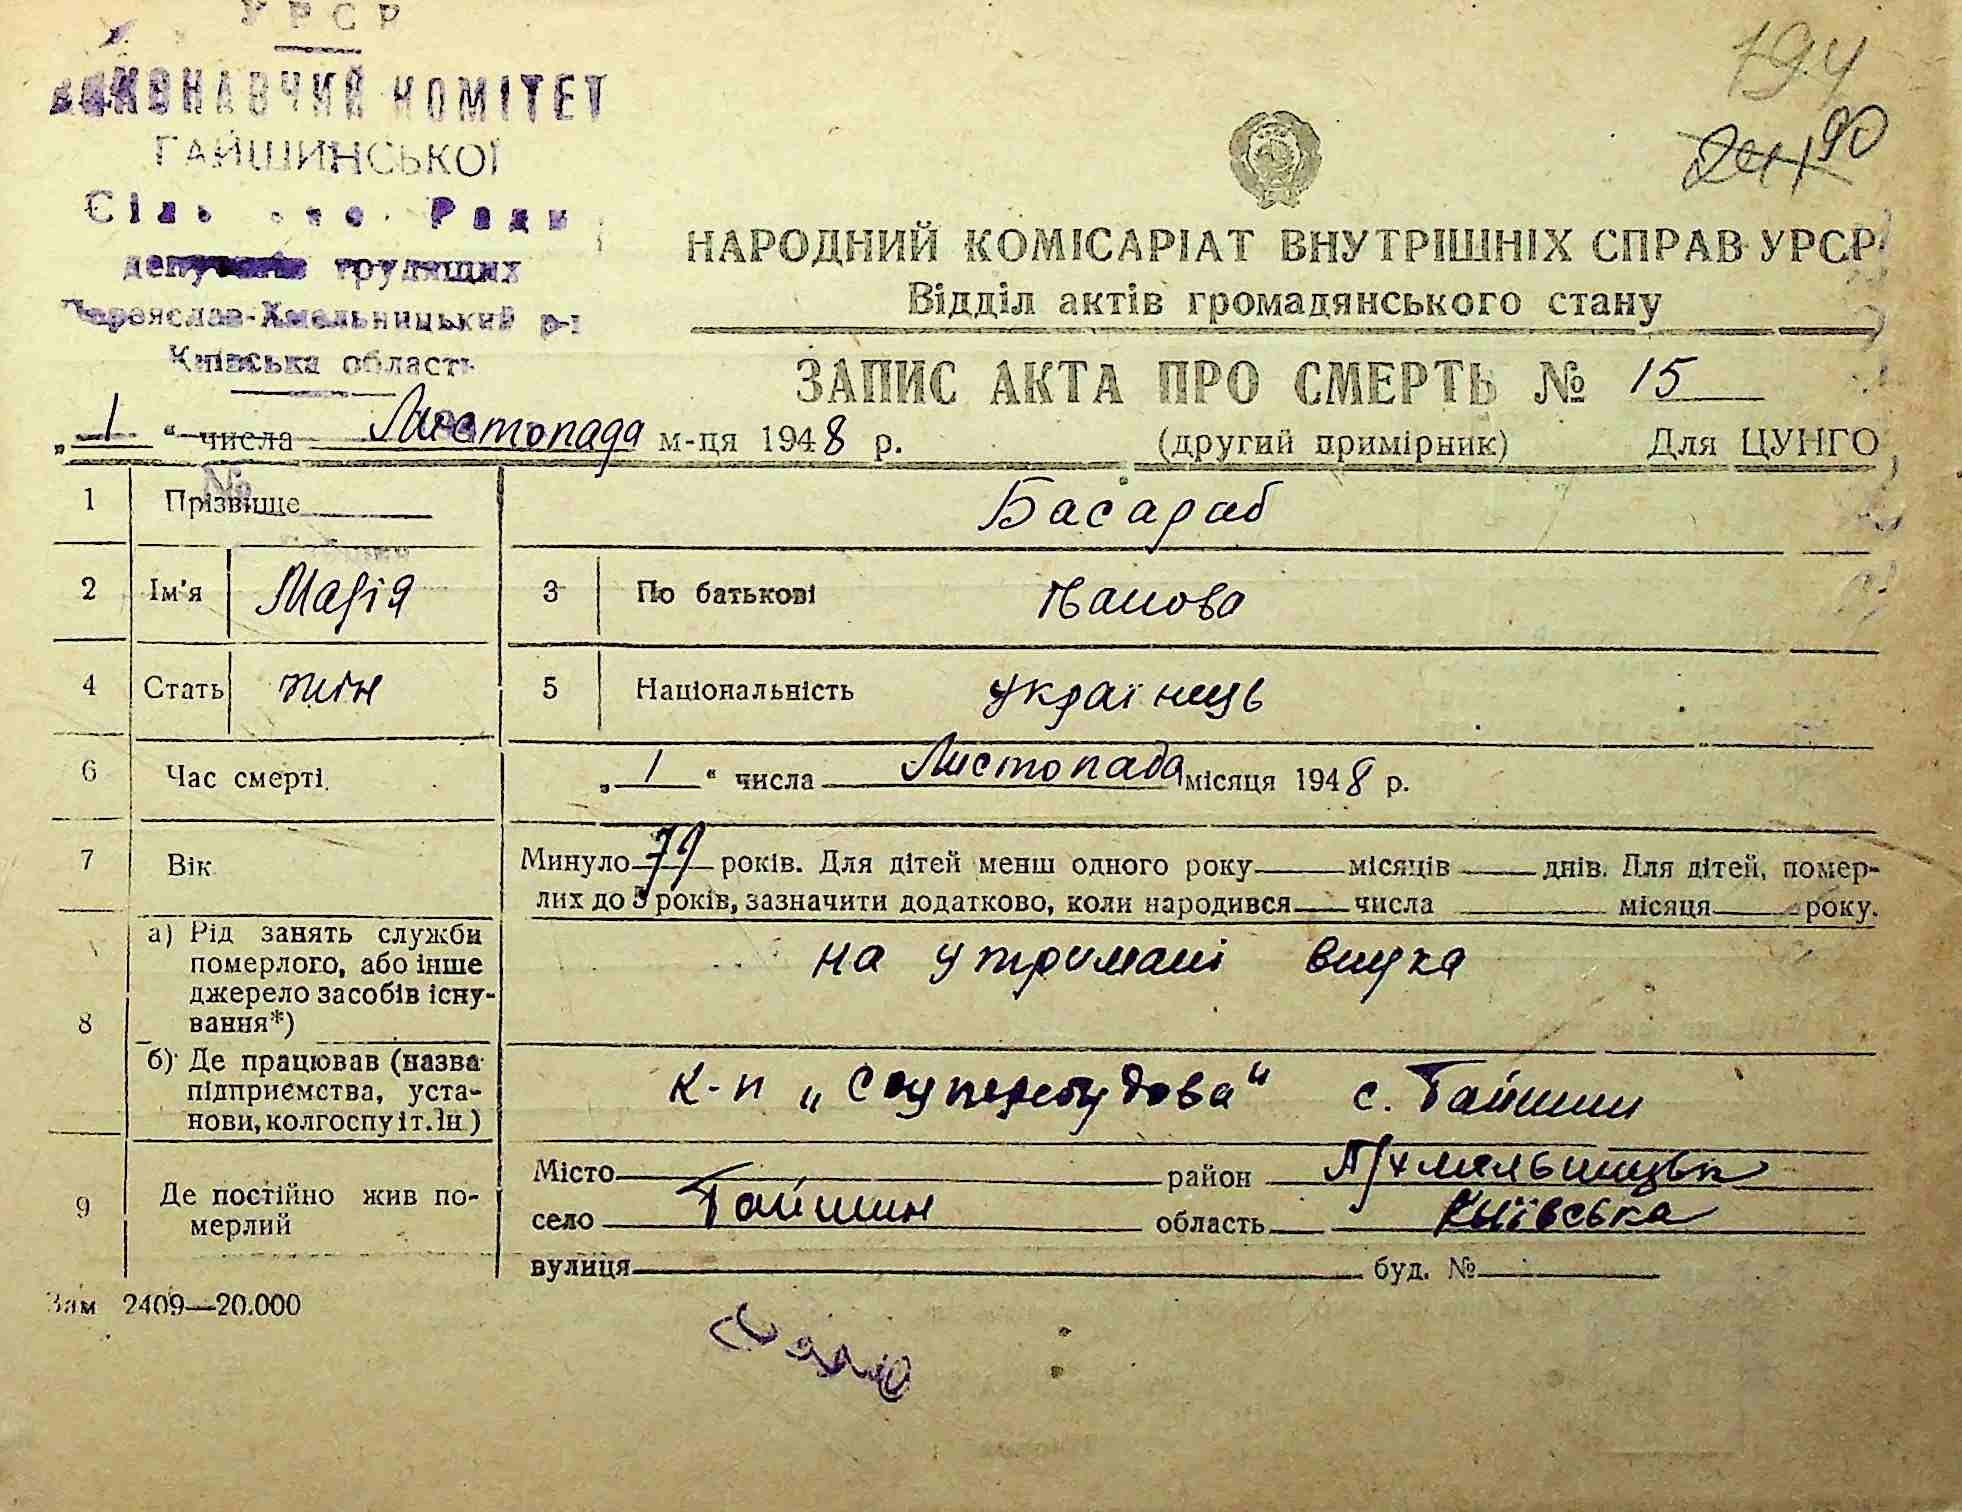 УРСР
ВИКОНАВЧИЙ КОМІТЕТ
ГАЙШИНСЬКОЇ
Ради
депутатів трудящих
Переяслав-Хмельницький р-н
Київська область
194
241 90
НАРОДНИЙ КОМІСАРІАТ ВНУТРІШНІХ СПРАВ УРСР
Відділ актів громадянського стану
ЗАПИС АКТА ПРО СМЕРТЬ № 15
„1“ числа Листопада м-ця 1948 р. (другий примірник) Для ЦУНГО
№
1 Прізвище Басараб
2 Ім'я Марія 3 По батькові Іванова
4 Стать жін 5 Національність українець
6 Час смерті „1“ числа Листопада місяця 1948 р.
7 Вік Минуло 79 років. Для дітей менш одного року місяців днів. Для дітей, помер-
лих до 5 років, зазначити додатково, коли народився числа місяця року.
8 а) Рід занять служби
померлого, або інше
джерело засобів існу-
вання*)
на утримані внука
б) Де працював (назва
підприємства, уста-
нови, колгоспу і т. ін.)
к-п „Соцперебудова“ с. Гайшин
9 Де постійно жив по-
мерлий
Місто район П/Хмельницьк
село Гайшин область Київська
вулиця буд. №
Зам 2409—20.000